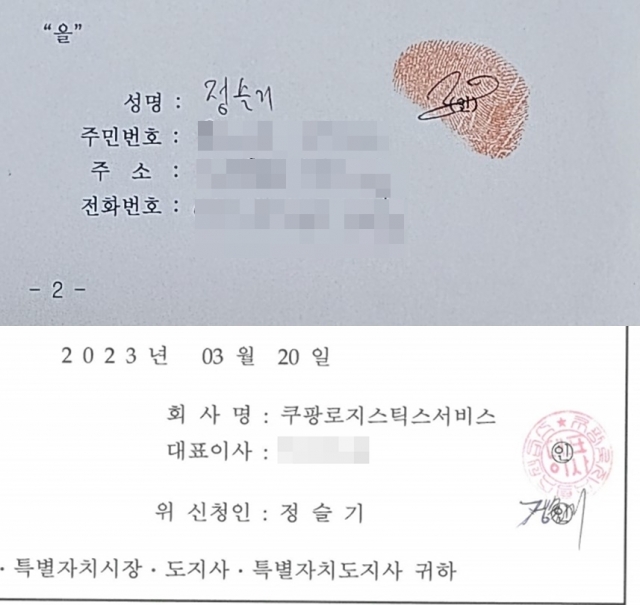 “을”
성명 : 정슬기
주민번호 :
주 소 :
전화번호 :
(인)
- 2 -
2023년 03월 20일
회 사 명 : 쿠팡로지스틱스서비스
대표이사 :
인
위 신청인 : 정 슬 기
· 특별자치시장 · 도지사 · 특별자치도지사 귀하